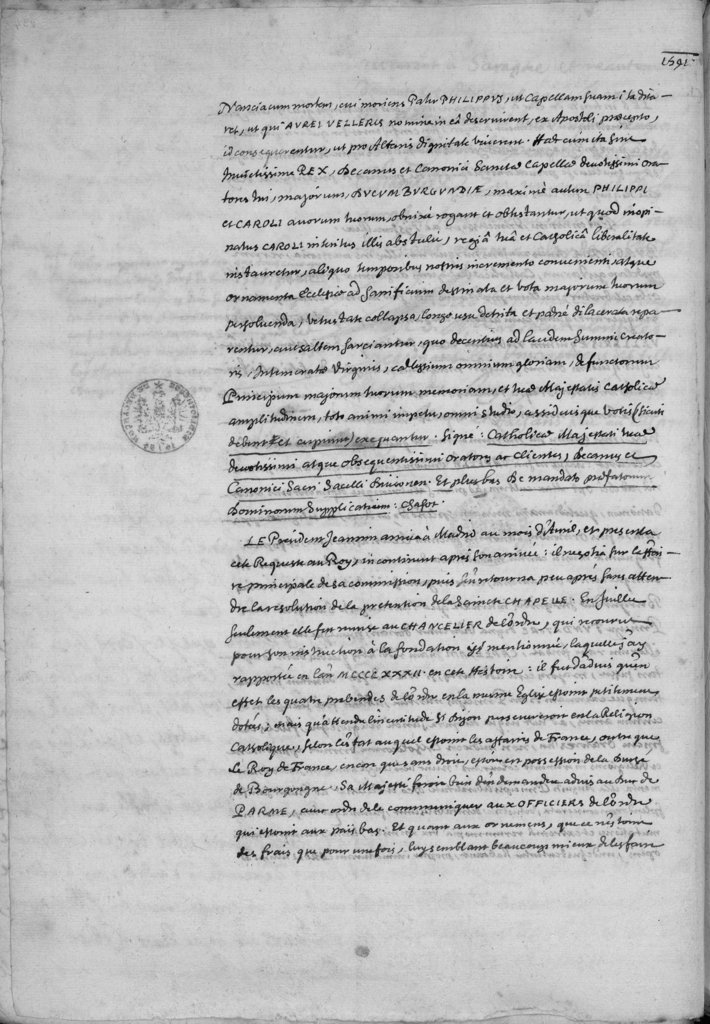 1591.
Nanciacum mortem, cui moriens Pater PHILIPPUS, ut Capellam suam ita dita-
ret, ut qui AUREI VELLERIS nomine in eâ deservirent, ex Apostoli præcepto,
id consequerentur, ut pro Altaris dignitate viverent. Hæc cum ita sint
Invictissime REX, Decanus et Canonici Sanctæ Capellæ devotissimi Ora-
tores tui, majorum, DUCUM BURGUNDIÆ, maximè autem PHILIPPI
et CAROLI avorum tuorum, obnixè rogant et obtestantur, ut quod inopi-
natus CAROLI interitus illis abstulit, regiâ tuâ et Catholicâ liberalitate
instauretur, aliquo temporibus nostris incremento convenienti, atque
ornamenta Ecclesiæ ad sacrificium destinata et vota majorum tuorum
persolvenda, vetustate collapsa, longo usu detrita et pænè dilacerata repa-
rentur, aut saltem sarciantur, quo decentius ad laudem Summi Creato-
ris, Intemeratæ Virginis, cælestium omnium gloriam, defunctorum
Principum majorum tuorum memoriam, et tuæ Majestatis Catholicæ
amplitudinem, toto animi impetu, omni studio, assiduisque votis (sicuti
debent et cupiunt) exequantur. Signé: Catholicæ Majestati tuæ
devotissimi atque obsequentissimi oratores ac Clientes, Decanus et
Canonici Sacri Sacelli Divionen. Et plus bas De mandato præfatorum
Dominorum Supplicatium: Chafot.
LE Président Jeannin arriva à Madrid au mois d'Avril, et presenta
cete Requeste au Roy, incontinent après son arrivée: il negotia sur l'affai-
re principale de sa commission, puis s'en retourna peu après sans atten-
dre la resolution de la pretention de la Saincte CHAPELLE. En Juillet
seulement elle fut remise au CHANCELIER de l'ordre, qui recourut
pour son instruction à la fondation y mentionnée, laquelle j'ay
rapportée en l'an MCCCCXXXII. en cete Histoire: il fut d'advis qu'en
effet les quatre prebendes de l'ordre en la mesme Eglise estoient petitement
dotées, mais qu'attendu l'incertitude si Dijon persevereroit en la Religion
Catholique, selon l'estat auquel estoient les affaires de France, outre que
Le Roy de France, encor que sans droit, estoit en possession de la Duché
de Bourgongne. Sa Majesté feroit bien d'en demander advis au Duc de
PARME, avec ordre de le communiquer aux OFFICIERS de l'ordre
qui estoient aux païs bas. Et quant aux ornemens, que ce n'estoient
des frais que pour une fois, luy semblant beaucoup mieux de les faire